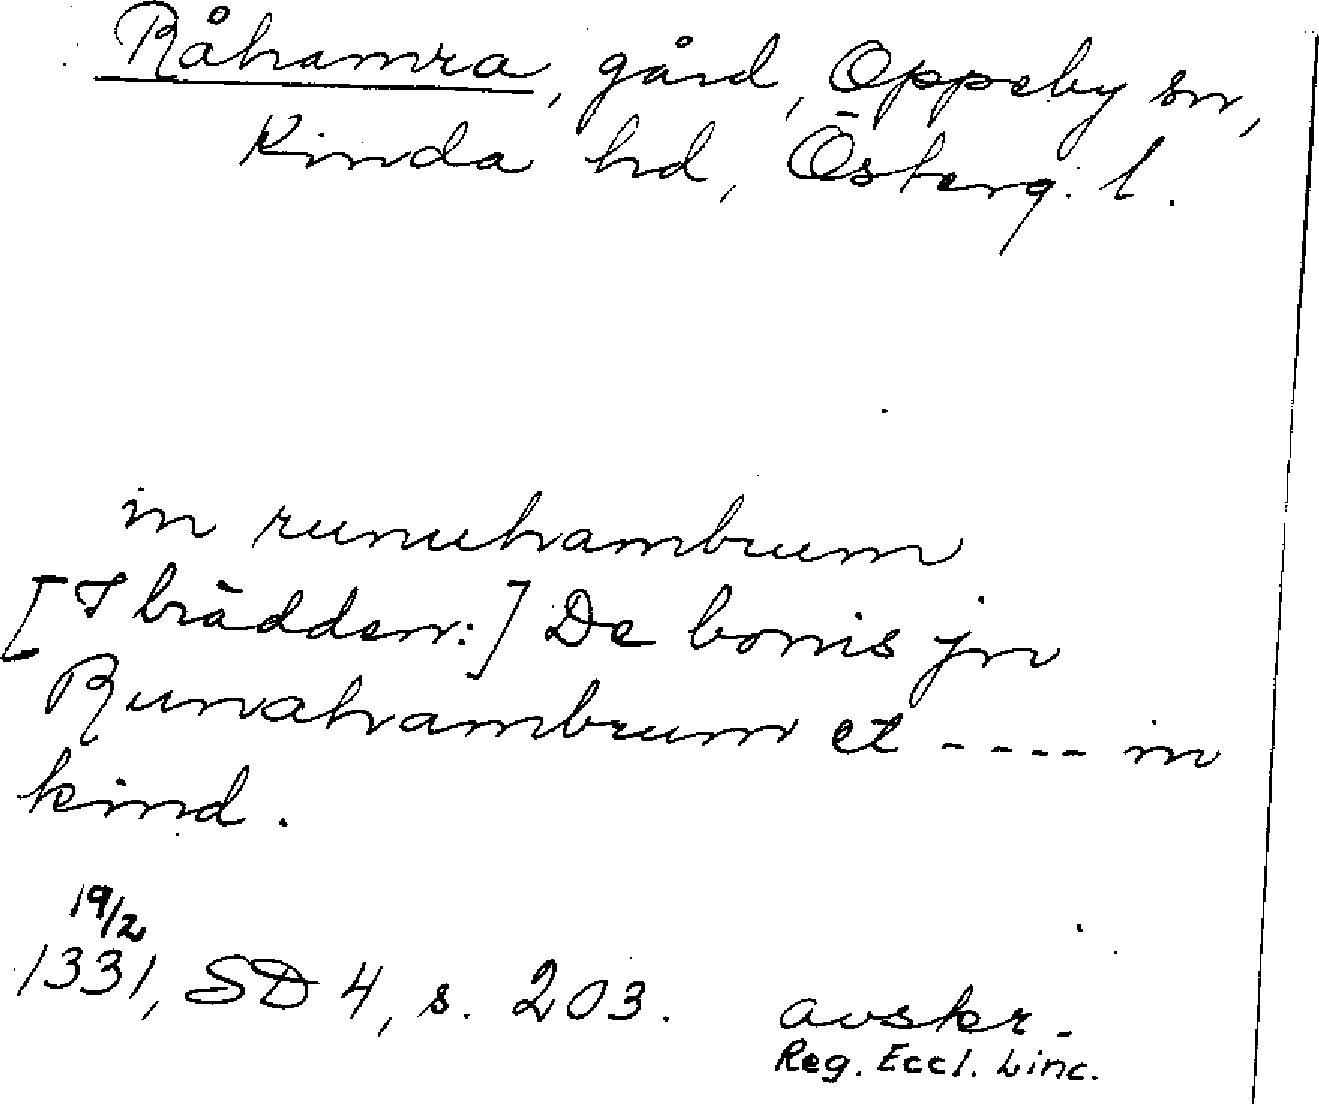 Råhamra, gård, Oppeby sn,
Kinda hd, Österg. l.
in runuhambrum
[I brädden:] De bonis jn
Runahambrum et ---- in
kind.
19/2
1331, SD 4, s. 203. avskr.
Reg. Eccl. Linc.